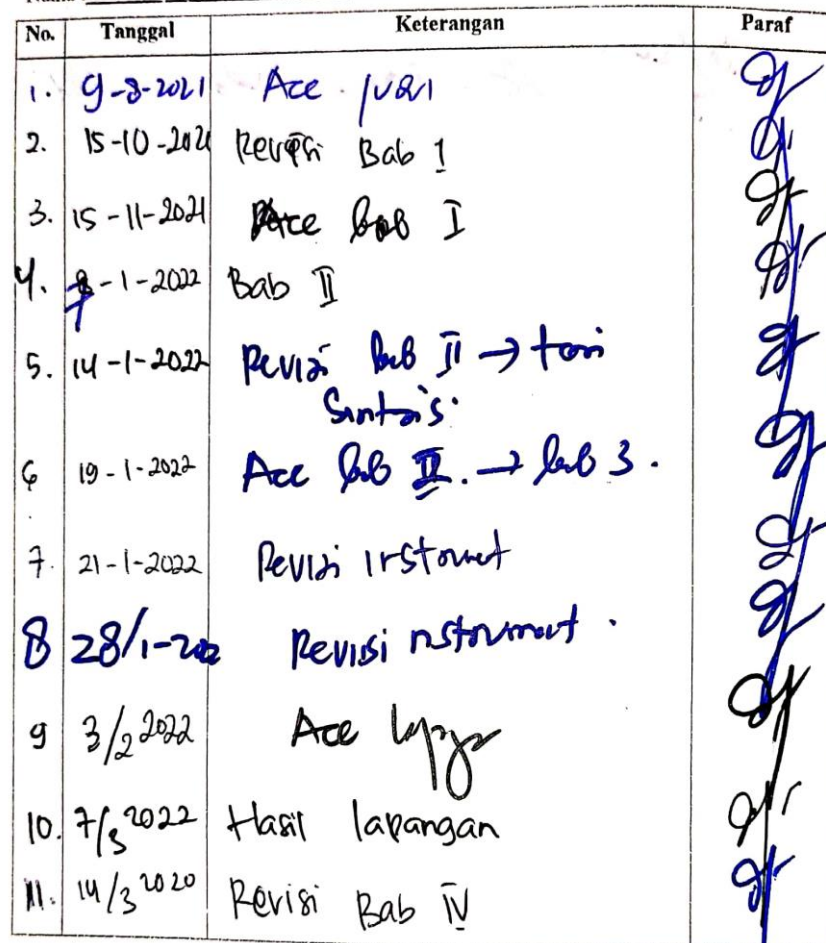 No. Tanggal Keterangan Paraf
1. 9-8-2021 Ace
2. 15-10-2021 Revisi Bab 1
3. 15-11-2021 Ace bab I
4. 7-1-2022 Bab II
5. 14-1-2022 Revisi bab II → teori
Sintaksis.
6 19-1-2022 Ace bab II. → bab 3.
7. 21-1-2022 Revisi instrument
8 28/1-2022 Revisi instrument.
9 3/2 2022 Ace
10. 7/3 2022 Hasil lapangan
11. 14/3 2020 Revisi Bab IV